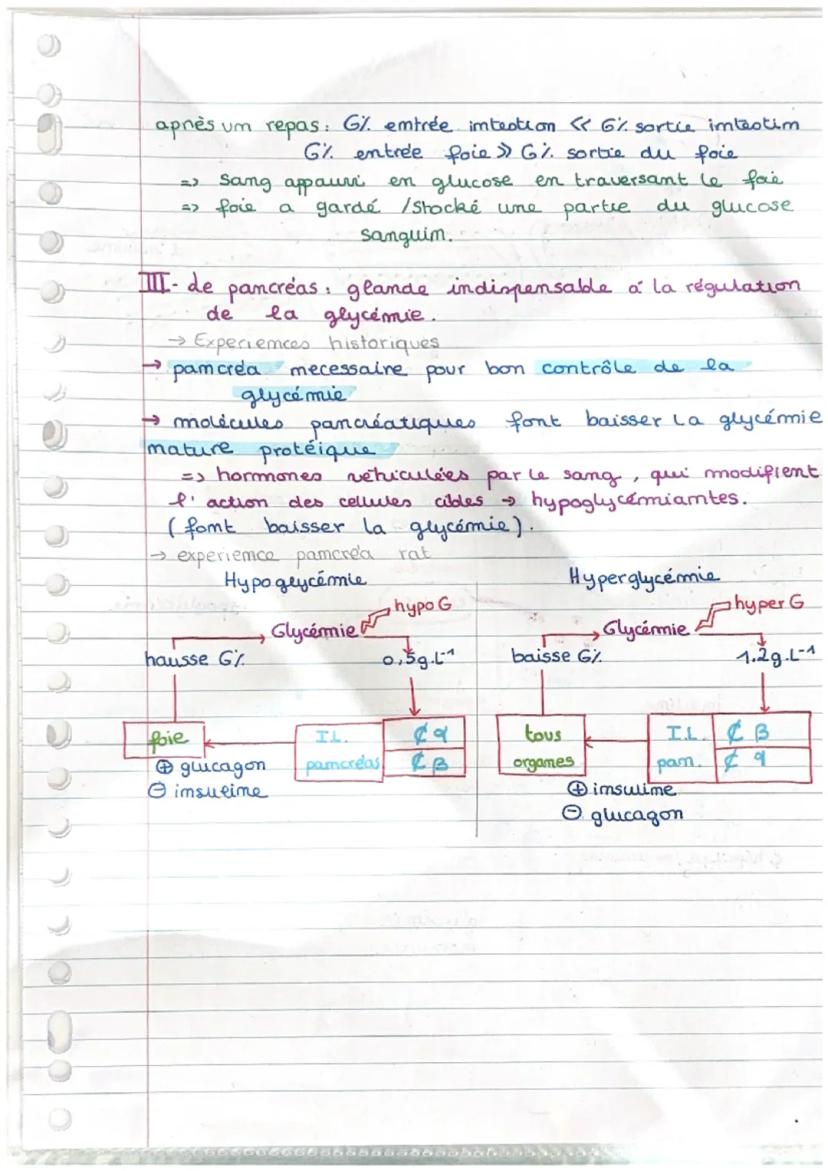 après um repas : G% emtrée imtestion << G% sortie imtestim
G% entrée foie >> G% sortie du foie
=> Sang appauvri en glucose en traversant le foie
=> foie a gardé / Stocké une partie du glucose
sanguim.
III - de pancréas : glande indispensable à la régulation
de la glycémie.
→ Experiemces historiques
→ pamcréa mecessaire pour bon contrôle de la
glycémie
→ molécules pancréatiques font baisser la glycémie
mature protéique
=> hormones véhiculées par le sang, qui modifient
l'action des cellules cibles → hypoglycémiamtes.
(fomt baisser la glycémie).
→ experiemce pamcréa rat
Hypoglycémie
hypo G
Glycémie
hausse G%
0,5g.L⁻¹
foie
I.L. ₵ α
pamcréas ₵ β
⊕ glucagon
⊖ imsulime
Hyperglycémie
hyper G
Glycémie
baisse G%
1.2g.L⁻¹
tous
orgames
I.L. ₵ β
pam. ₵ α
⊕ imsulime
⊖ glucagon